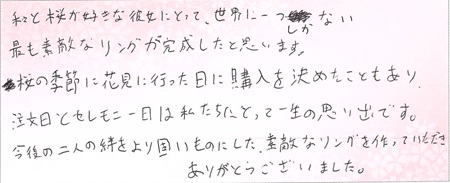 和と桜が好きな彼女にとって、世界に一つしかない
最も素敵なリングが完成したと思います。
桜の季節に花見に行った日に購入を決めたこともあり
注文日とセレモニー日は私たちにとって一生の思い出です。
今後の二人の絆をより固いものにした、素敵なリングを作っていただき
ありがとうございました。